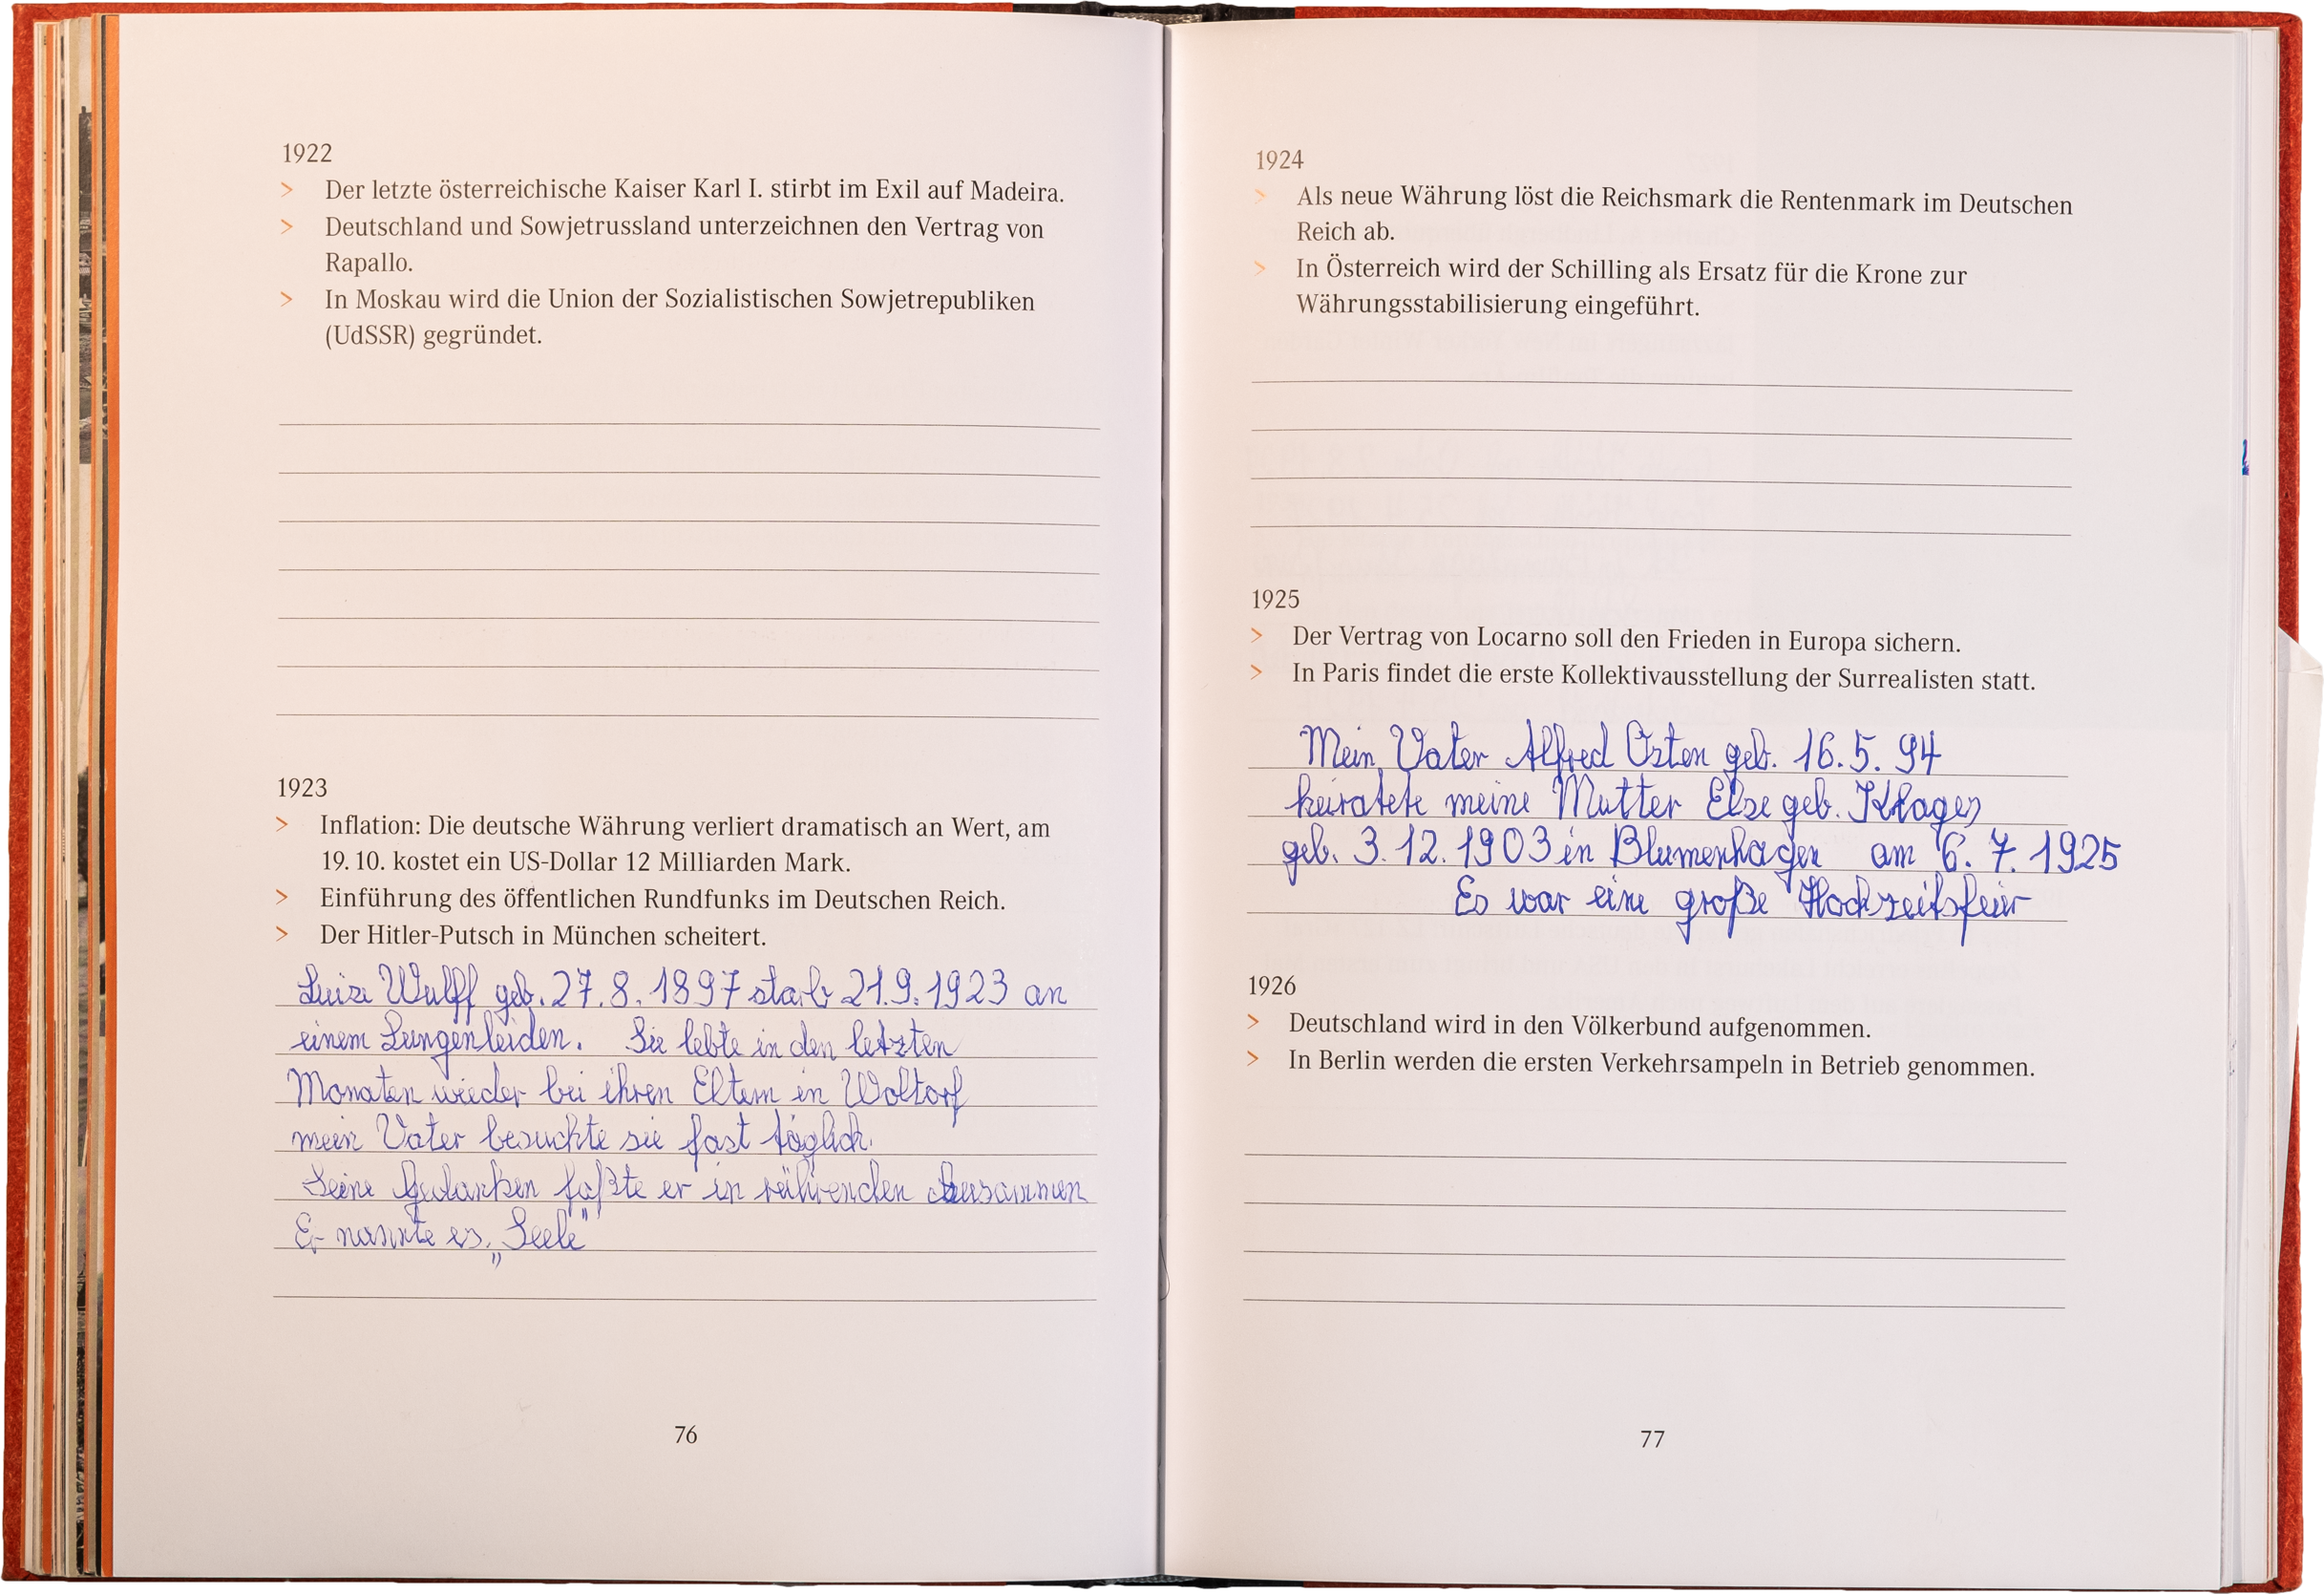 1922
> Der letzte österreichische Kaiser Karl I. stirbt im Exil auf Madeira.
> Deutschland und Sowjetrussland unterzeichnen den Vertrag von
Rapallo.
> In Moskau wird die Union der Sozialistischen Sowjetrepubliken
(UdSSR) gegründet.
1923
> Inflation: Die deutsche Währung verliert dramatisch an Wert, am
19. 10. kostet ein US-Dollar 12 Milliarden Mark.
> Einführung des öffentlichen Rundfunks im Deutschen Reich.
> Der Hitler-Putsch in München scheitert.
Luise Wulff geb. 27. 8. 1897 starb 21.9.1923 an
einem Lungenleiden. Sie lebte in den letzten
Monaten wieder bei ihren Eltern in Woltorf
mein Vater besuchte sie fast täglich.
Seine Gedanken faßte er in rührenden zusammen
Er nannte es „Seele"
76
1924
> Als neue Währung löst die Reichsmark die Rentenmark im Deutschen
Reich ab.
> In Österreich wird der Schilling als Ersatz für die Krone zur
Währungsstabilisierung eingeführt.
1925
> Der Vertrag von Locarno soll den Frieden in Europa sichern.
> In Paris findet die erste Kollektivausstellung der Surrealisten statt.
Mein Vater Alfred Osten geb. 16. 5. 94
heiratete meine Mutter Else geb. Klages
geb. 3. 12. 1903 in Blumenhagen am 6. 7. 1925
Es war eine große Hochzeitsfeier
1926
> Deutschland wird in den Völkerbund aufgenommen.
> In Berlin werden die ersten Verkehrsampeln in Betrieb genommen.
77